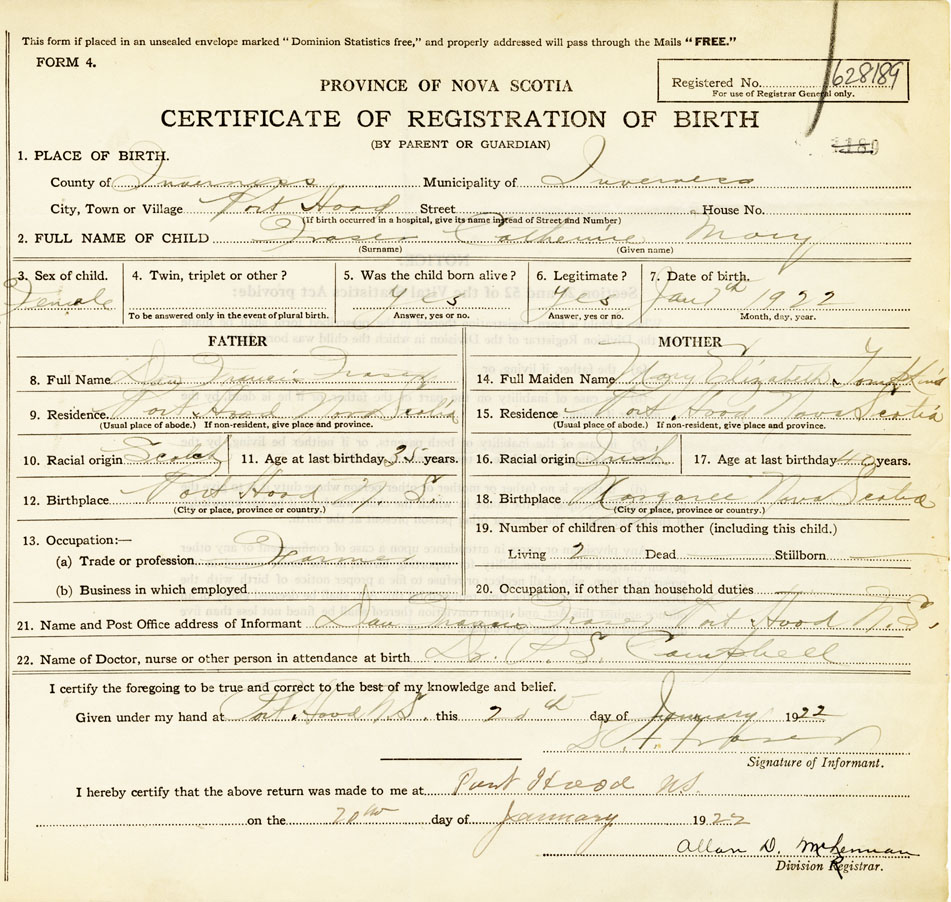 This form if placed in an unsealed envelope marked "Dominion Statistics free," and properly addressed will pass through the Mails "FREE."
FORM 4.
PROVINCE OF NOVA SCOTIA
Registered No. 628189
For use of Registrar General only.
CERTIFICATE OF REGISTRATION OF BIRTH
(BY PARENT OR GUARDIAN)
1. PLACE OF BIRTH.
County of Inverness Municipality of Inverness
City, Town or Village Port Hood Street House No.
(If birth occurred in a hospital, give its name instead of Street and Number)
2. FULL NAME OF CHILD Fraser Catherine Mary
(Surname) (Given name)
3. Sex of child. 4. Twin, triplet or other? 5. Was the child born alive? 6. Legitimate? 7. Date of birth.
Female Yes Yes Jan 7th 1922
To be answered only in the event of plural birth. Answer, yes or no. Answer, yes or no. Month, day, year.
FATHER MOTHER
8. Full Name Dan Francis Fraser 14. Full Maiden Name Mary Elizabeth Tompkins
9. Residence Port Hood Nova Scotia 15. Residence Port Hood Nova Scotia
(Usual place of abode.) If non-resident, give place and province. (Usual place of abode.) If non-resident, give place and province.
10. Racial origin Scotch 11. Age at last birthday 35 years. 16. Racial origin Irish 17. Age at last birthday 40 years.
12. Birthplace Port Hood N.S. 18. Birthplace Margaree Nova Scotia
(City or place, province or country.) (City or place, province or country.)
13. Occupation:— 19. Number of children of this mother (including this child.)
(a) Trade or profession Farmer Living 2 Dead Stillborn
(b) Business in which employed 20. Occupation, if other than household duties
21. Name and Post Office address of Informant Dan Francis Fraser Port Hood N.S.
22. Name of Doctor, nurse or other person in attendance at birth Dr. P.S. Campbell
I certify the foregoing to be true and correct to the best of my knowledge and belief.
Given under my hand at Port Hood N.S. this day of January 1922
D. F. Fraser
Signature of Informant.
I hereby certify that the above return was made to me at Port Hood NS.
on the 20th day of January 1922
Allan D. McLennan
Division Registrar.